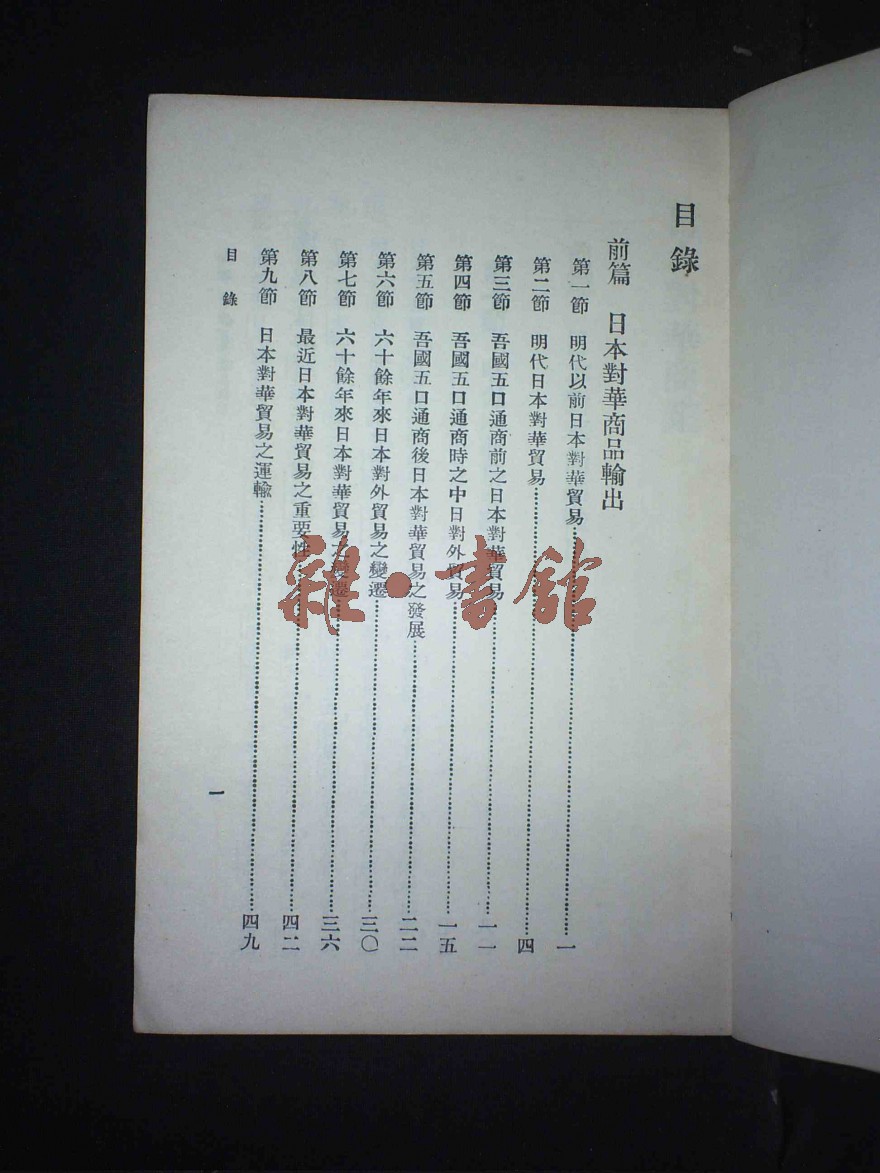 目錄
前篇 日本對華商品輸出
第一節 明代以前日本對華貿易……一
第二節 明代日本對華貿易……四
第三節 吾國五口通商前之日本對華貿易……一一
第四節 吾國五口通商時之中日對外貿易……一五
第五節 吾國五口通商後日本對華貿易之發展……二二
第六節 六十餘年來日本對外貿易之變遷……三〇
第七節 六十餘年來日本對華貿易之變遷……三六
第八節 最近日本對華貿易之重要性……四二
第九節 日本對華貿易之運輸……四九
目錄
一
雜·書館